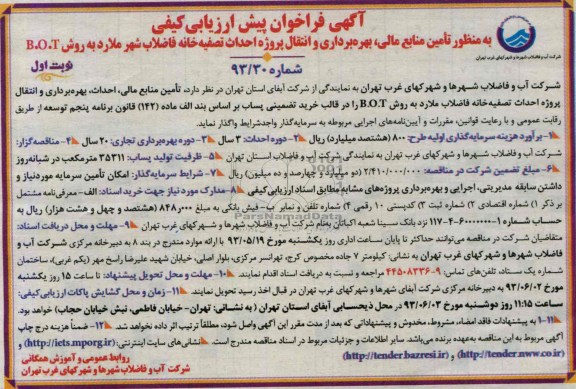 آگهی فراخوان پیش ارزیابی کیفی
به منظور تأمین منابع مالی، بهره‌برداری و انتقال پروژه احداث تصفیه‌خانه فاضلاب شهر ملارد به روش B.O.T
شماره ۹۳/۳۰
نوبت اول
شرکت آب و فاضلاب شهرها و شهرکهای غرب تهران
شرکت آب و فاضلاب شهرها و شهرکهای غرب تهران به نمایندگی از شرکت آبفای استان تهران در نظر دارد، تأمین منابع مالی، احداث، بهره‌برداری و انتقال
پروژه احداث تصفیه‌خانه فاضلاب ملارد به روش B.O.T را در قالب خرید تضمینی پساب بر اساس بند الف ماده (۱۴۲) قانون برنامه پنجم توسعه از طریق
رقابت عمومی و با رعایت قوانین، مقررات و آیین‌نامه‌های اجرایی مربوطه به سرمایه‌گذار واجدشرایط واگذار نماید.
۱- برآورد هزینه سرمایه‌گذاری اولیه طرح: ۸۰۰ (هشتصد میلیارد) ریال ۲- دوره احداث: ۳ سال ۳- دوره بهره‌برداری تجاری: ۲۰ سال ۴- مناقصه‌گزار:
شرکت آب و فاضلاب شهرها و شهرکهای غرب تهران به نمایندگی شرکت آب و فاضلاب استان تهران ۵- ظرفیت تولید پساب: ۳۵۳۱۱ مترمکعب در شبانه‌روز
۶- مبلغ تضمین شرکت در مناقصه: ۲/۴۱۰/۰۰۰/۰۰۰ (دو میلیارد و چهارصد و ده میلیون) ریال ۷- شرایط سرمایه‌گذار: امکان تأمین سرمایه موردنیاز و
داشتن سابقه مدیریتی، اجرایی و بهره‌برداری پروژه‌های مشابه مطابق اسناد ارزیابی کیفی ۸- مدارک مورد نیاز جهت خرید اسناد: الف- معرفی‌نامه مشتمل
بر ذکر ۱) شماره اقتصادی ۲) شماره ثبت ۳) کدپستی ۱۰ رقمی ۴) شماره تلفن و نمابر ب- فیش بانکی به مبلغ ۸۴۸۰۰۰ (هشتصد و چهل و هشت هزار) ریال به
حساب شماره ۱-۶۰۰۰۰۰۰-۴-۱۱۷ نزد بانک سینا شعبه اکباتان به‌نام شرکت آب و فاضلاب شهرها و شهرکهای غرب تهران ۹- مهلت و محل دریافت اسناد:
متقاضیان شرکت در مناقصه می‌توانند حداکثر تا پایان ساعت اداری روز یکشنبه مورخ ۹۳/۰۵/۱۹ با ارائه موارد مندرج در بند ۸ به دبیرخانه مرکزی شرکت آب و
فاضلاب شهرها و شهرکهای غرب تهران به نشانی: کیلومتر ۷ جاده مخصوص کرج، تهرانسر مرکزی، بلوار اصلی، خیابان شهید علیرضا راسخ مهر (یکم غربی)، ساختمان
شماره یک ستاد، تلفن‌های تماس: ۹-۴۴۵۰۸۳۳۶ مراجعه و نسبت به دریافت اسناد اقدام نمایند. ۱۰- مهلت و محل تحویل پیشنهاد: تا ساعت ۱۵ روز یکشنبه
مورخ ۹۳/۰۶/۰۲ به دبیرخانه مرکزی شرکت آبفای شهرها و شهرکهای غرب تهران در قبال اخذ رسید تحویل نمایند. ۱۱- زمان و محل گشایش پاکات ارزیابی کیفی:
ساعت ۱۱:۱۵ روز دوشنبه مورخ ۹۳/۰۶/۰۳ در محل ذیحسابی آبفای استان تهران (به نشانی: تهران- خیابان فاطمی، نبش خیابان حجاب) خواهد بود.
۱-۱۱ به پیشنهادات فاقد امضاء، مشروط، مخدوش و پیشنهاداتی که بعد از مدت مقرر این آگهی واصل شود، مطلقاً ترتیب اثر داده نخواهد شد. ۱۲- ضمناً هزینه درج چاپ
آگهی مربوط به این مناقصه به‌عهده برنده می‌باشد. سایر اطلاعات و جزئیات مربوط در اسناد مناقصه مندرج است. نشانی‌های سایت اینترنتی: (http://iets.mporg.ir) و
(http://tender.nww.co.ir) و (http://tender.bazresi.ir)
روابط عمومی و آموزش همگانی
شرکت آب و فاضلاب شهرها و شهرکهای غرب تهران